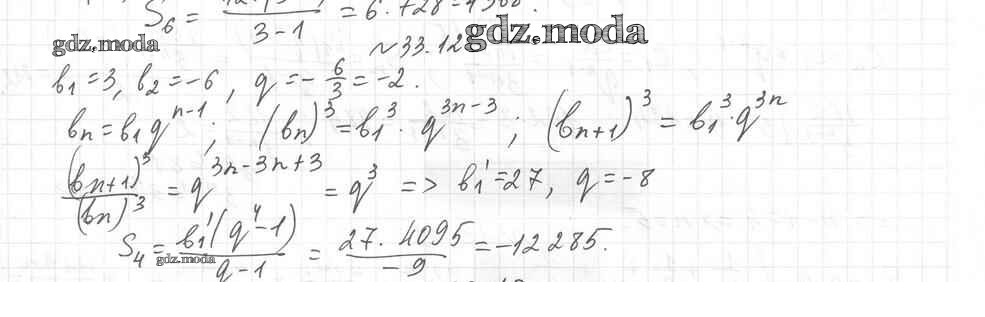 S₆ = = 6·728 = 4368.
gdz.moda
3 - 1
N33.12
gdz.moda
b₁ = 3, b₂ = -6, q = -6/3 = -2.
bₙ = b₁qⁿ⁻¹; (bₙ)³ = b₁³ · q³ⁿ⁻³; (bₙ₊₁)³ = b₁³ · q³ⁿ
(bₙ₊₁)³/(bₙ)³ = q³ⁿ⁻³ⁿ⁺³ = q³ => b₁' = 27, q = -8
S₄ = b₁'(q⁴-1)/(q-1) = 27·4095/-9 = -12285.
gdz.moda